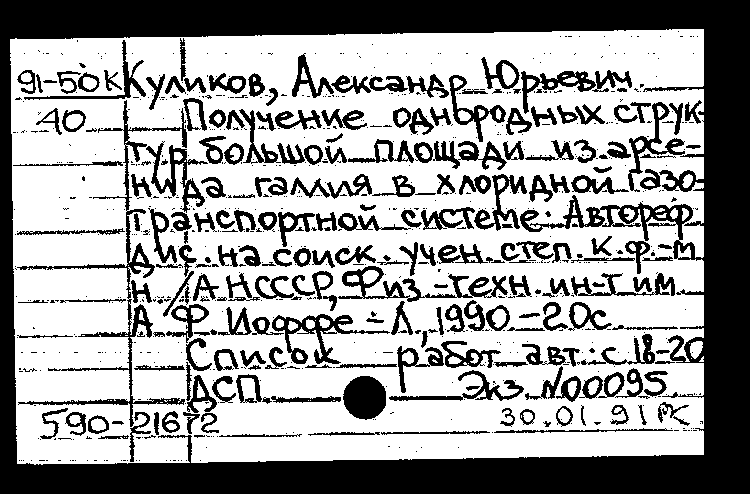 91-50к Куликов, Александр Юрьевич.
40 Получение однородных струк-
тур большой площади из арсе-
нида галлия в хлоридной газо-
транспортной системе: Автореф
дис. на соиск. учен. степ. к.ф.-м
н / АН СССР, Физ.-техн. ин-т им.
А Ф. Иоффе - Л, 1990. - 20с.
Список работ авт.: с. 18-20
ДСП. Экз. N00095.
590-21672 30.01.91